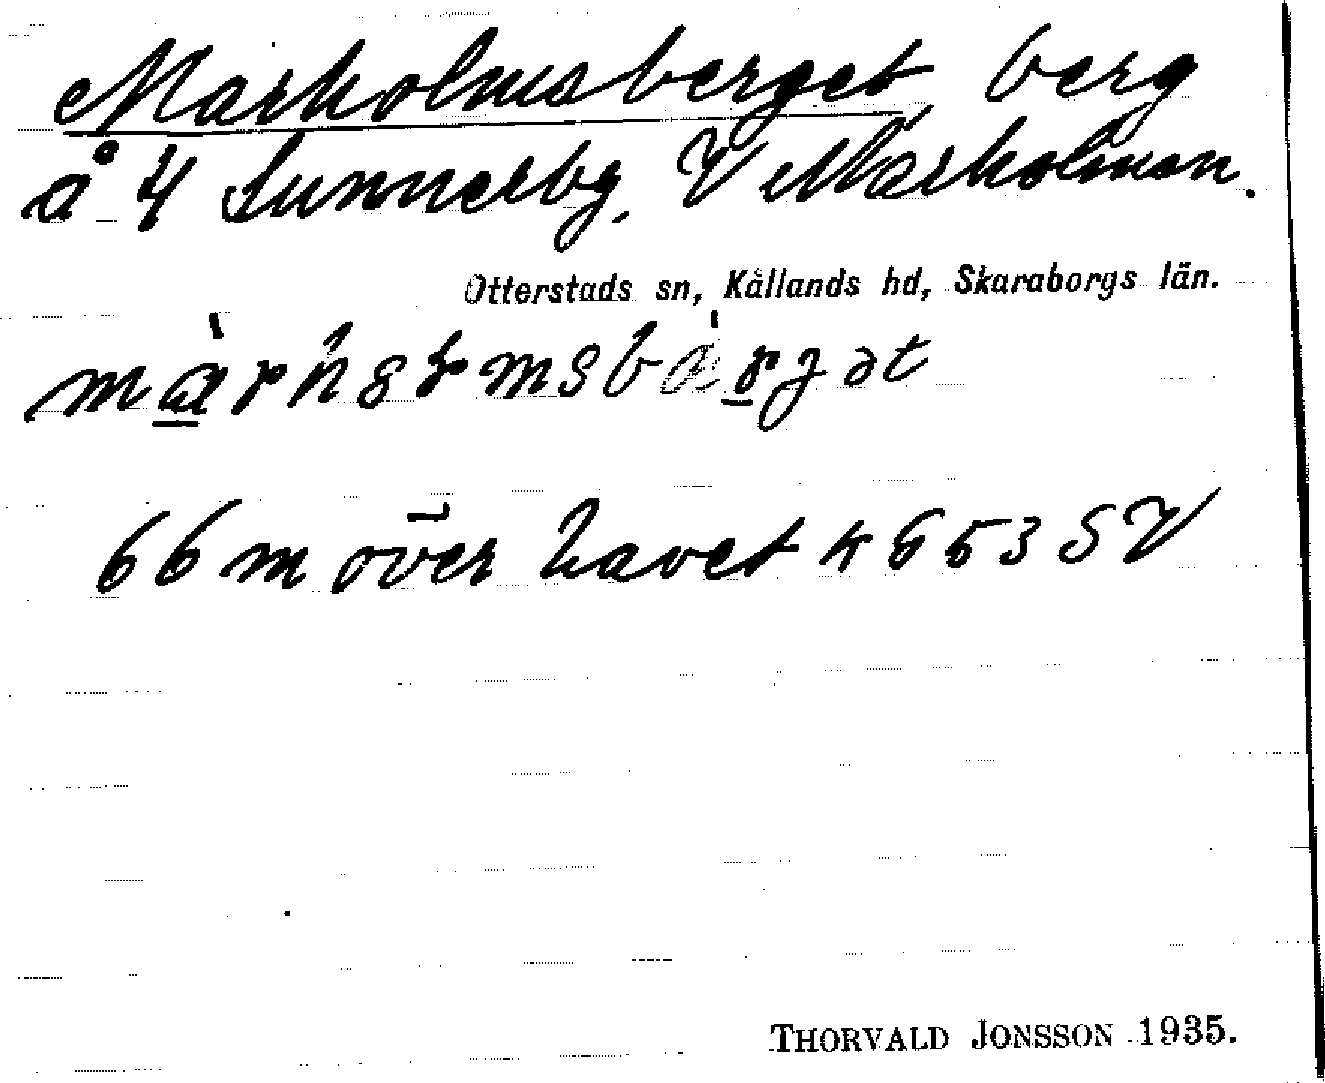 Marholmsberget, berg
å 4 Sunnerby, V Marholmen.
Otterstads sn, Kållands hd, Skaraborgs län.
66 m över havet
THORVALD JONSSON 1935.